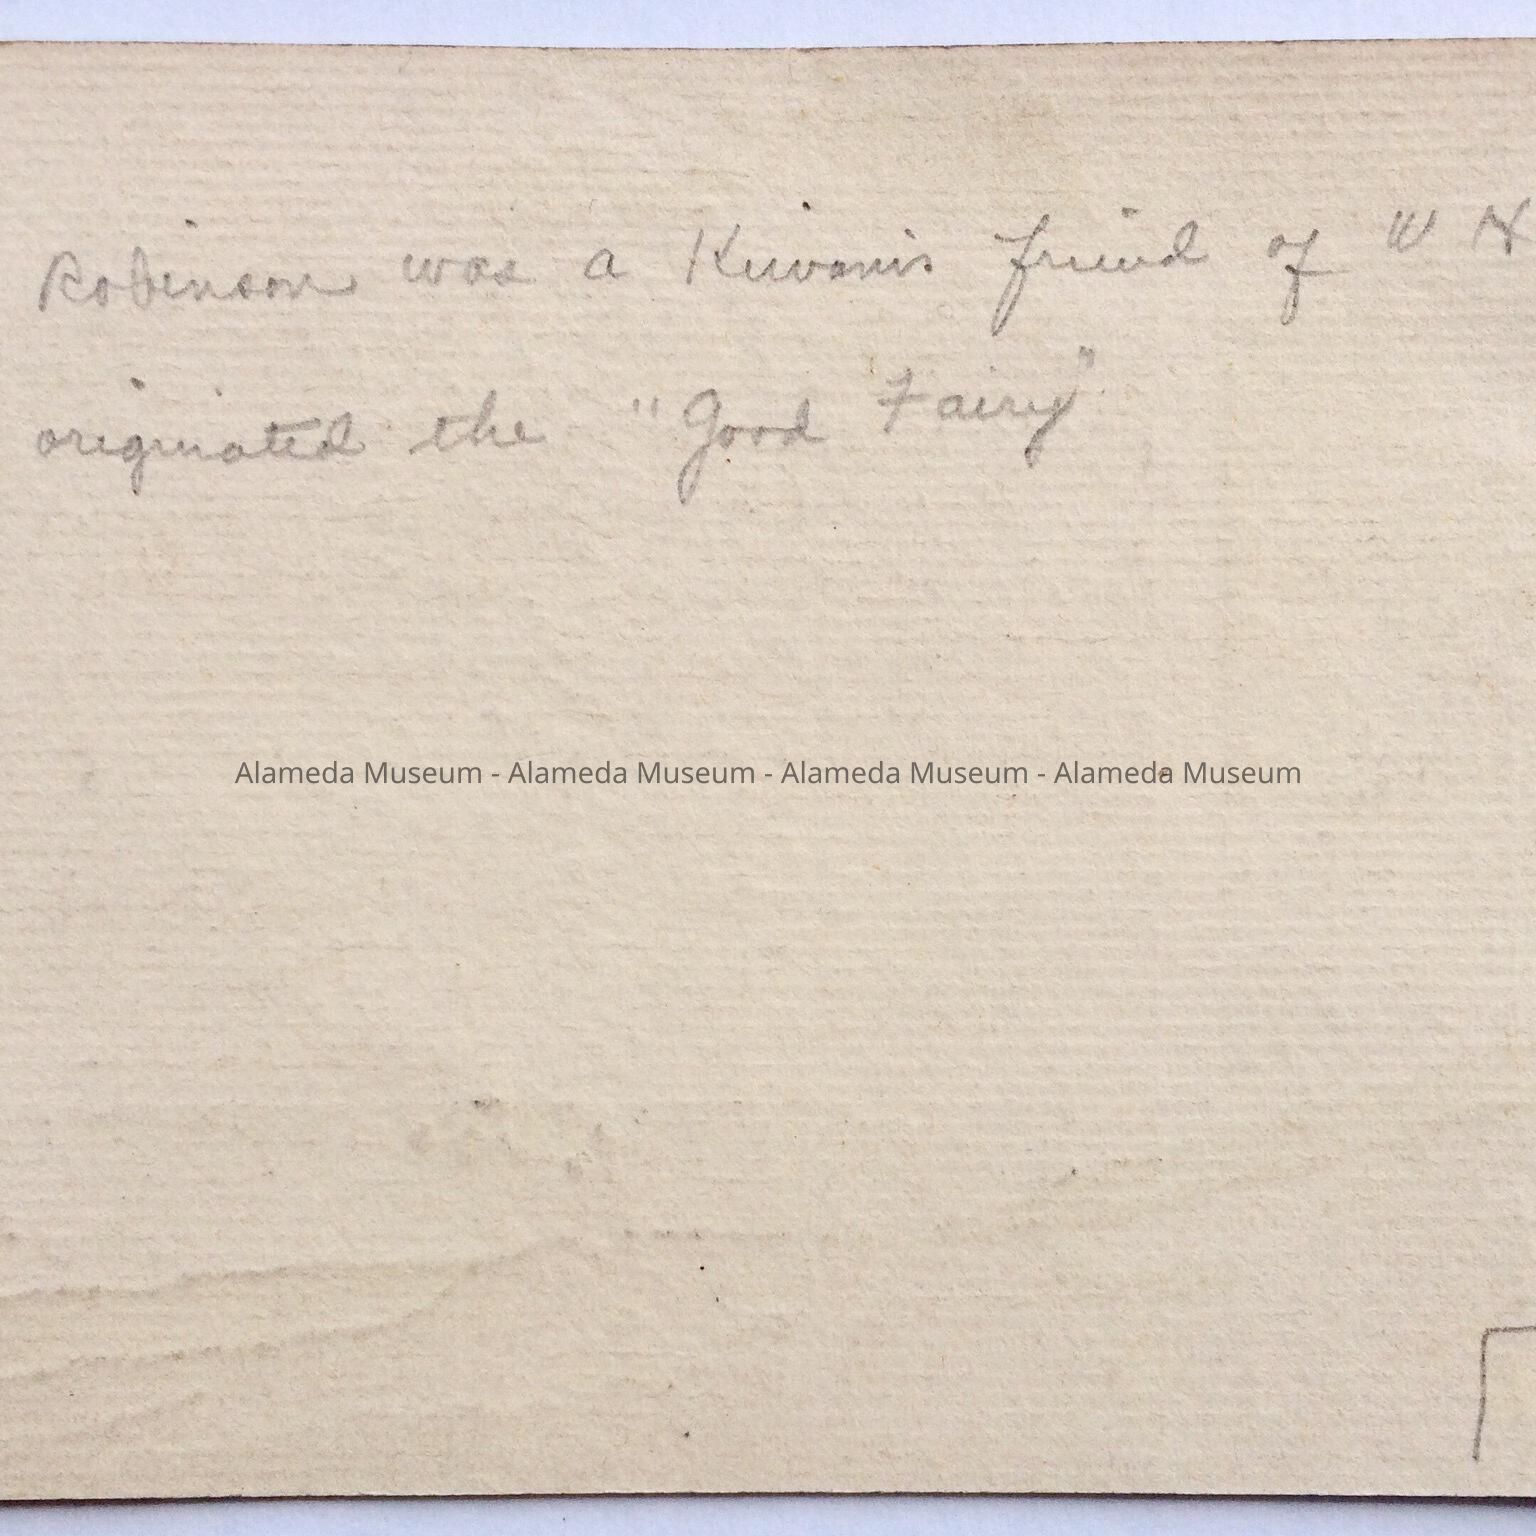 Robinson was a Kiwanis friend of W H
originated the "Good Fairy"
Alameda Museum - Alameda Museum - Alameda Museum - Alameda Museum